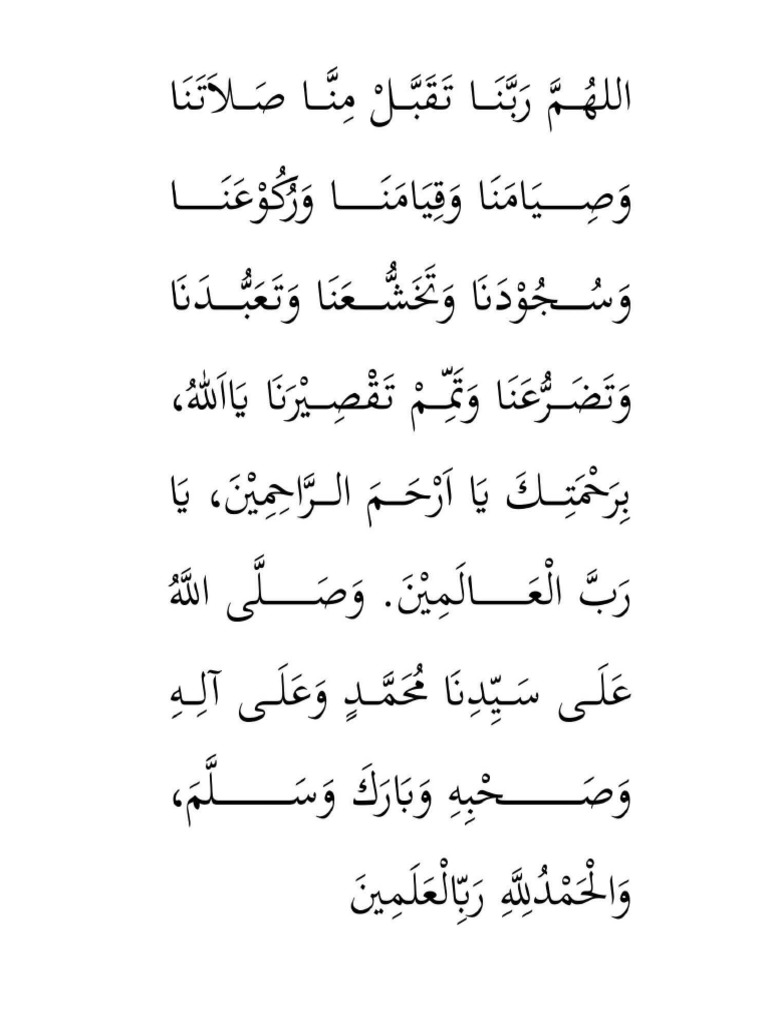 اللهُمَّ رَبَّنَا تَقَبَّلْ مِنَّا صَلاَتَنَا
وَصِيَامَنَا وَقِيَامَنَا وَرُكُوْعَنَا
وَسُجُوْدَنَا وَتَخَشُّعَنَا وَتَعَبُّدَنَا
وَتَضَرُّعَنَا وَتَمِّمْ تَقْصِيْرَنَا يَااَللهُ،
بِرَحْمَتِكَ يَا اَرْحَمَ الرَّاحِمِيْنَ، يَا
رَبَّ الْعَالَمِيْنَ. وَصَلَّى اللَّهُ
عَلَى سَيِّدِنَا مُحَمَّدٍ وَعَلَى آلِهِ
وَصَحْبِهِ وَبَارَكَ وَسَلَّمَ،
وَالْحَمْدُلِلَّهِ رَبِّالْعَلَمِينَ